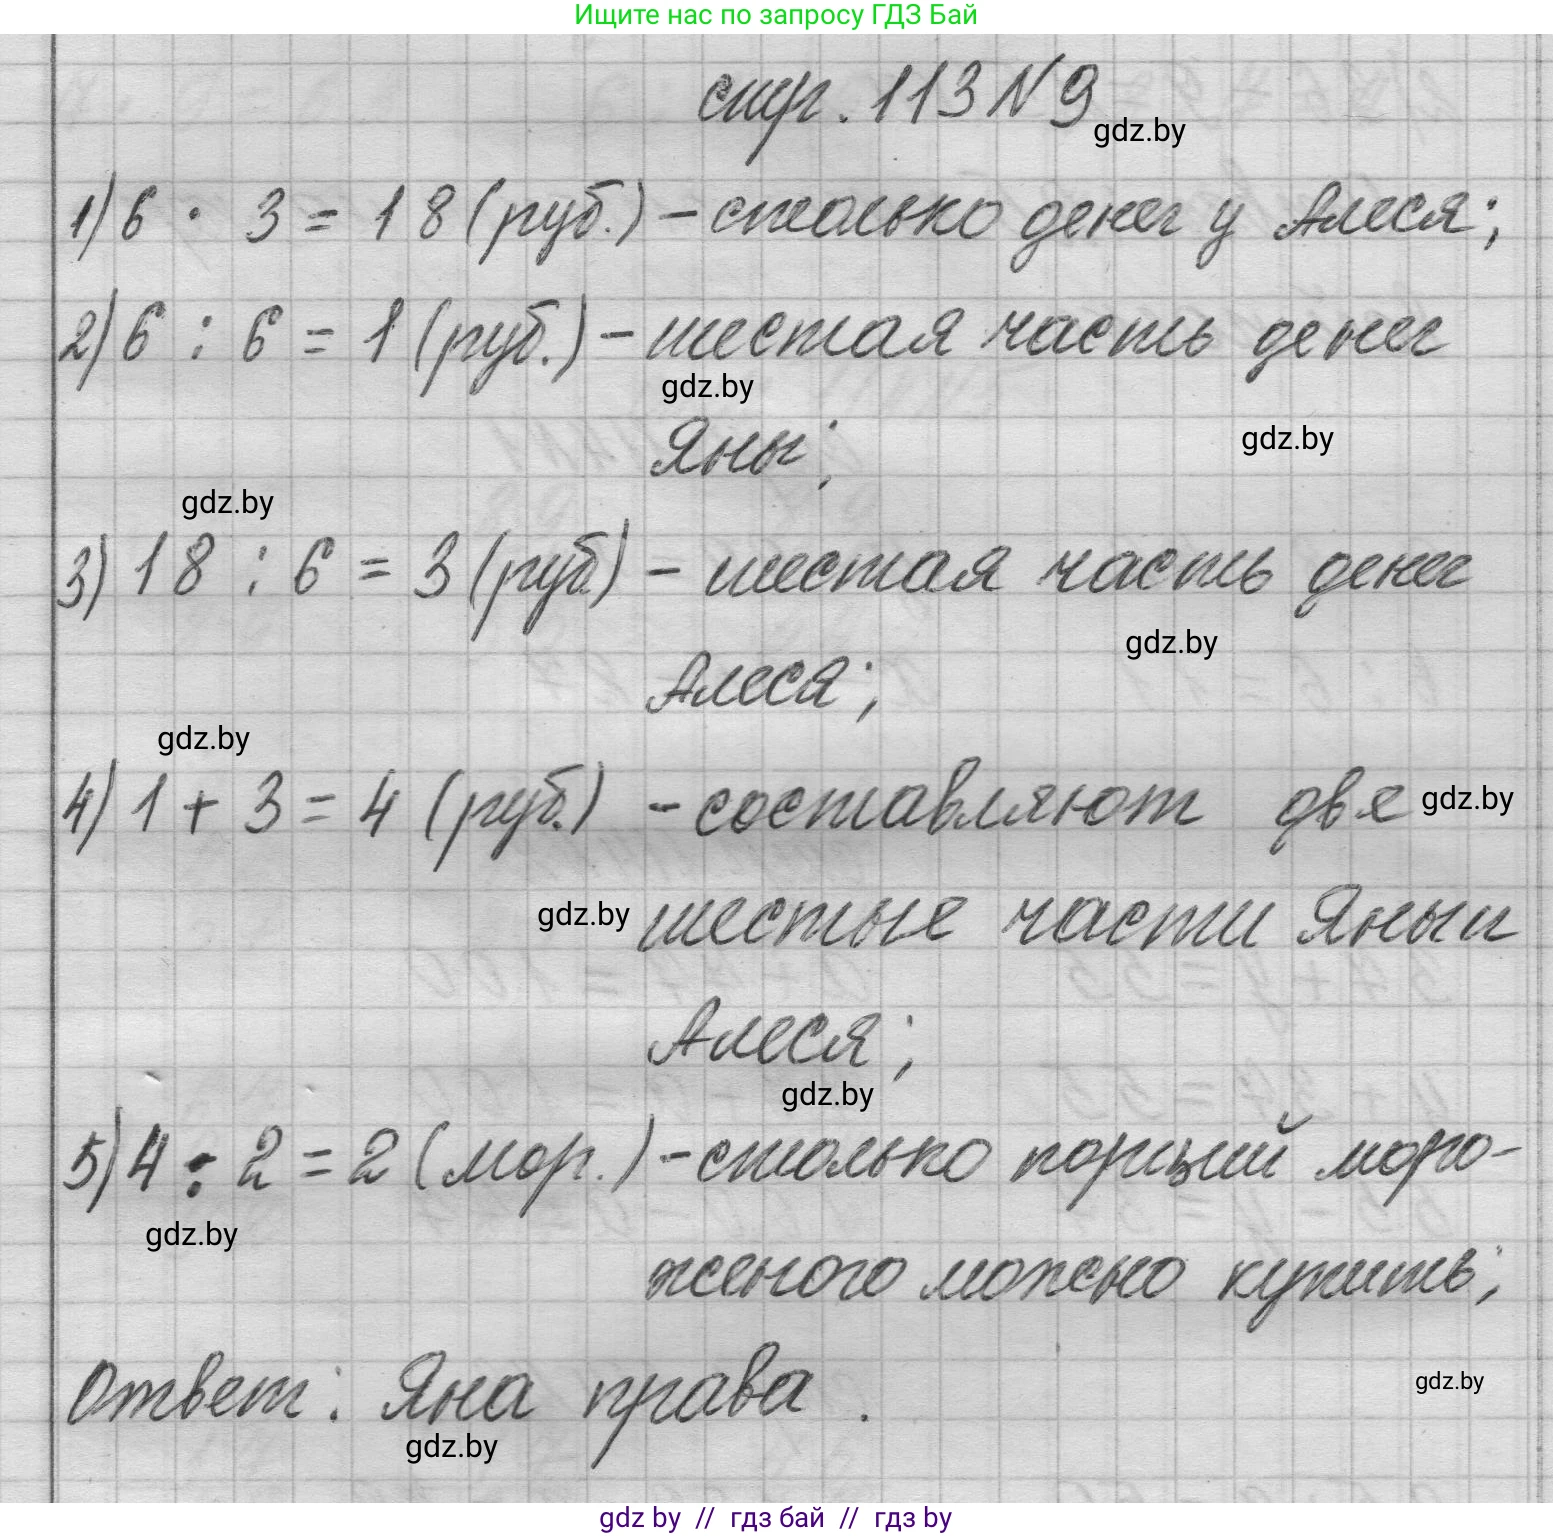 Ищите нас по запросу ГДЗ Бай
стр. 113 N 9
gdz.by
1) 6 · 3 = 18 (руб.) - столько денег у Алеся;
2) 6 : 6 = 1 (руб.) - шестая часть денег
gdz.by
Яны;
gdz.by
gdz.by
3) 18 : 6 = 3 (руб.) - шестая часть денег
gdz.by
Алеся;
gdz.by
4) 1 + 3 = 4 (руб.) - составляют две
gdz.by
gdz.by
шестые части Яны и
Алеся;
gdz.by
5) 4 : 2 = 2 (мор.) - столько порций моро-
gdz.by
женого можно купить;
Ответ: Яна права.
gdz.by
gdz.by
gdz by // гдз бай // гдз by